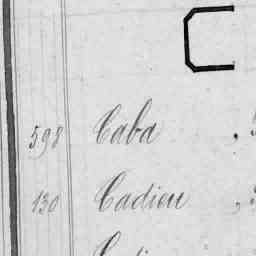 C
598 Caba ,
130 Cadieu ,